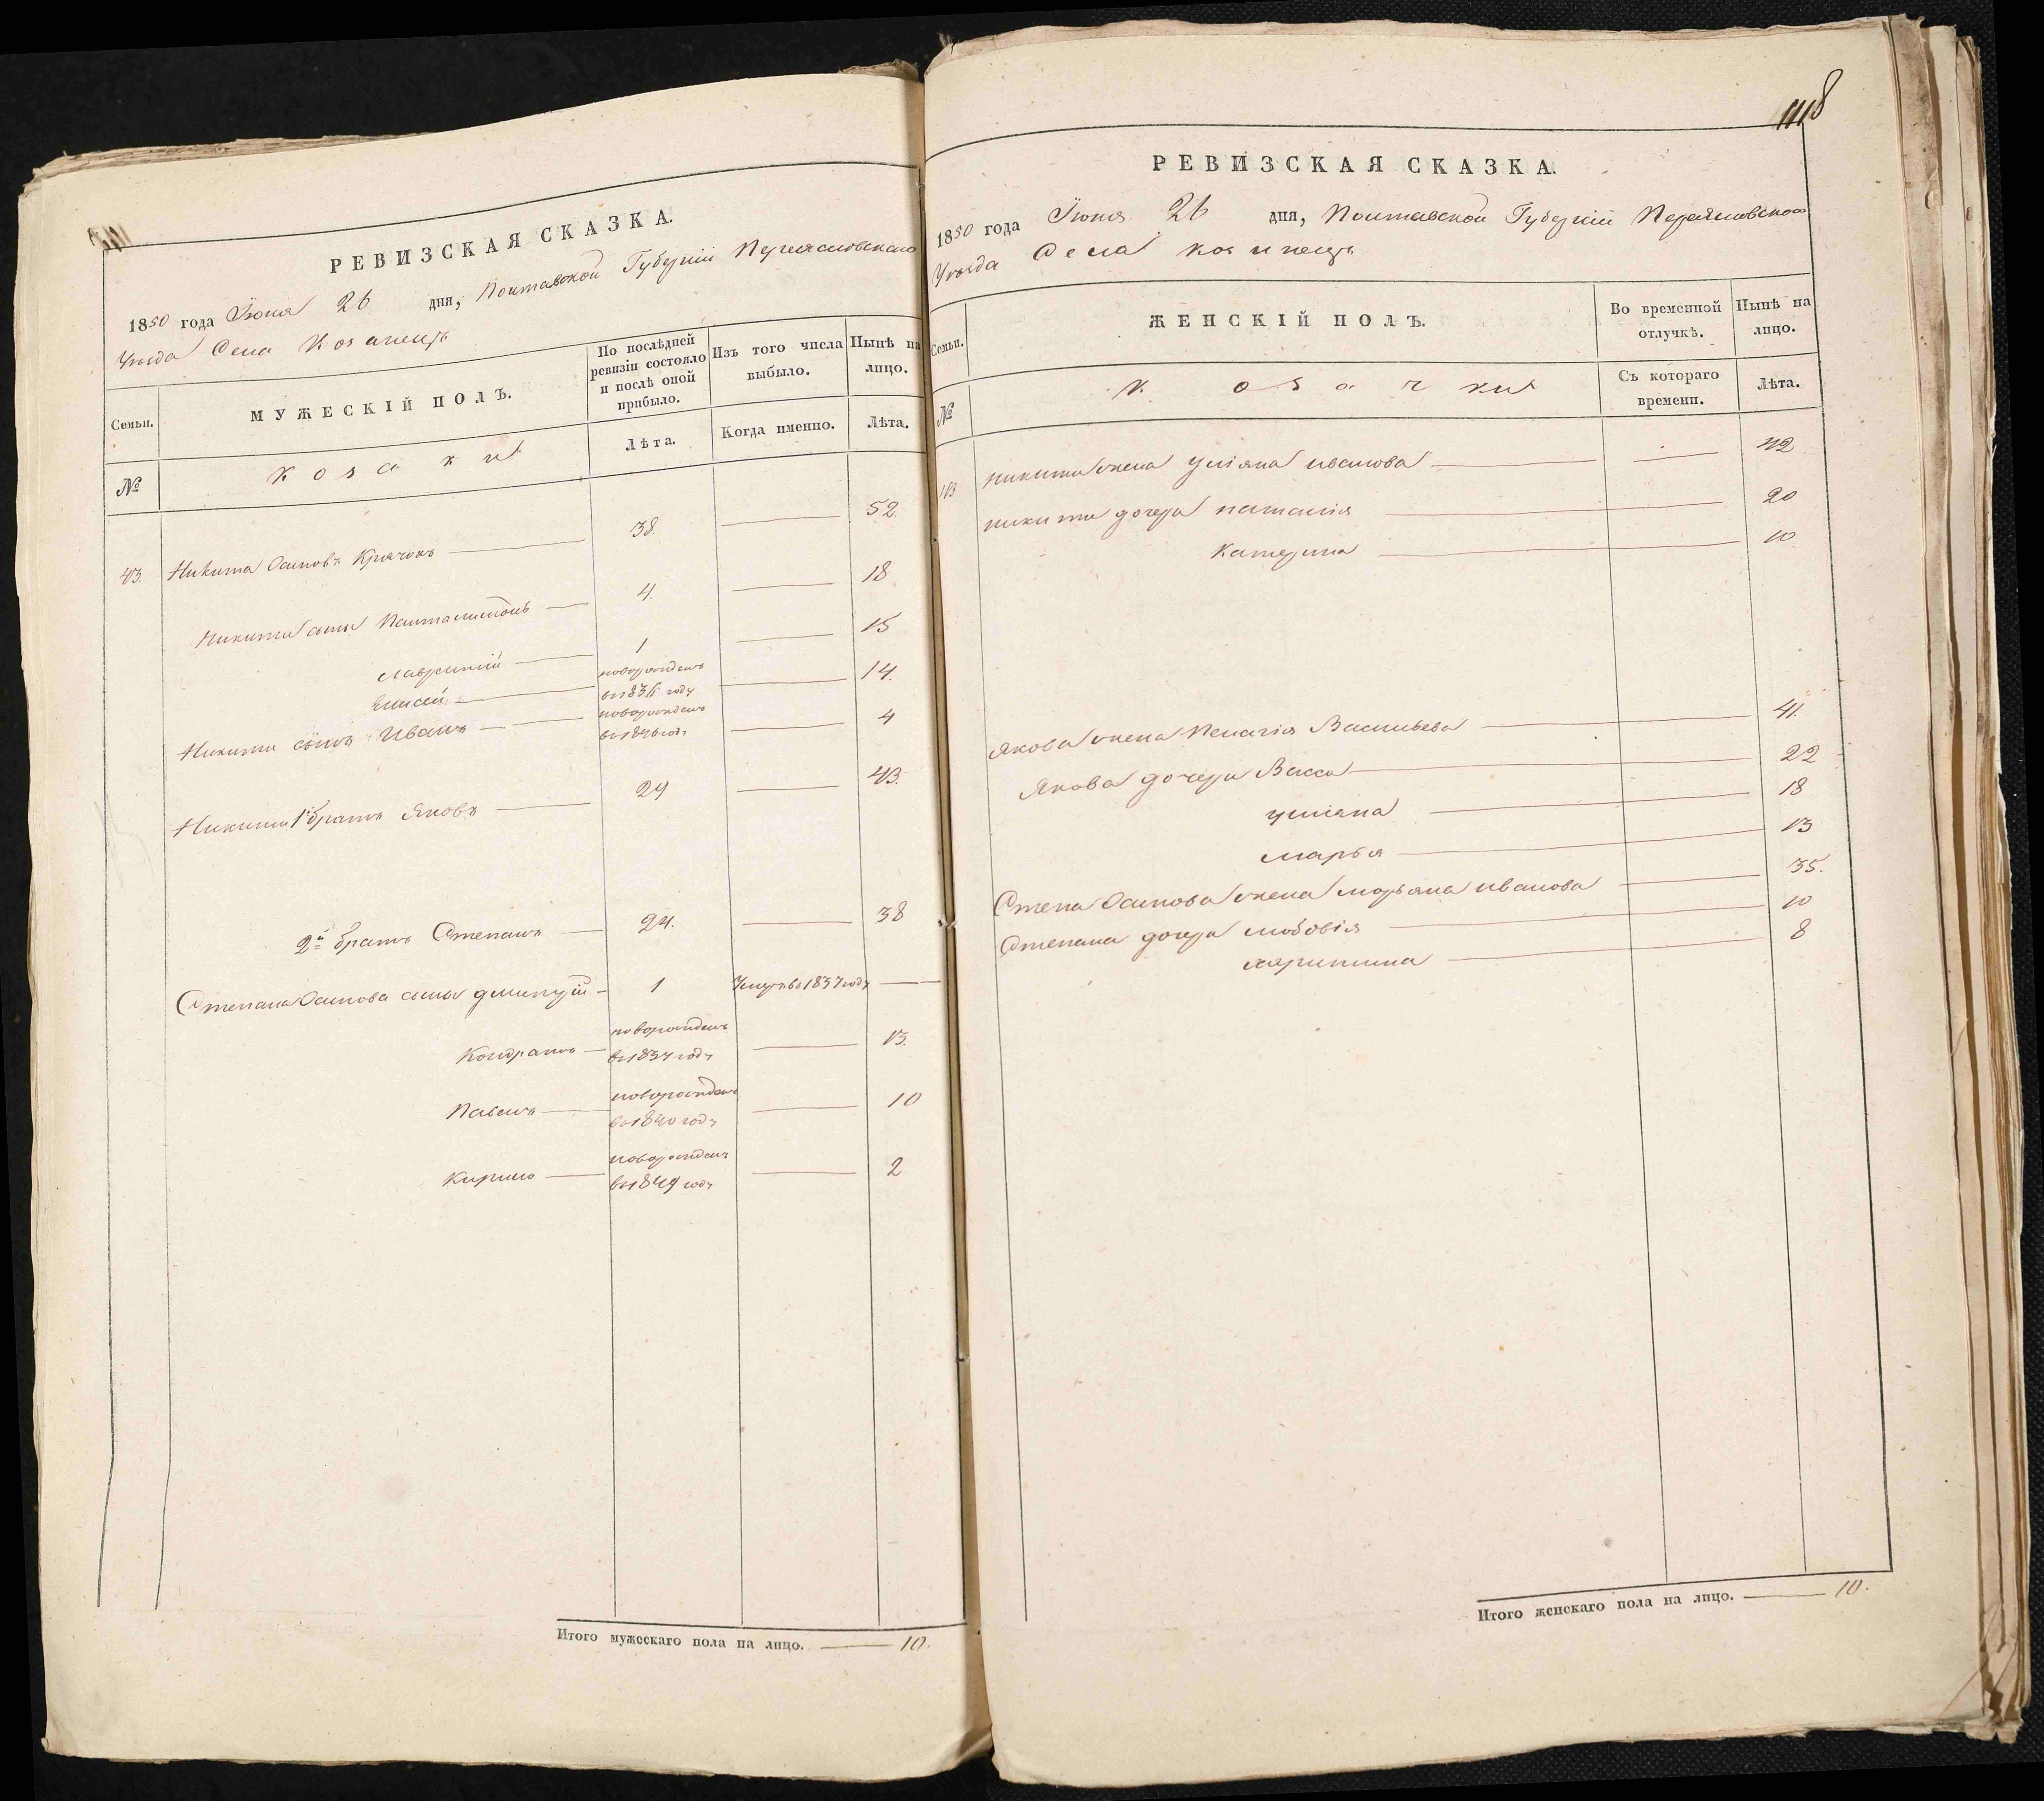 РЕВИЗСКАЯ СКАЗКА.
1850 года Іюня 26 дня, Полтавской Губерніи Переясловскаго
Уѣзда Села Козинецъ
Семьи.
МУЖЕСКІЙ ПОЛЪ.
По послѣдней ревизіи состояло и послѣ оной прибыло.
Изъ того числа выбыло.
Нынѣ на лицо.
№
козаки
Лѣта.
Когда именно.
Лѣта.
43. Никита Осиповъ 38. 52.
Никиты сыны Панталимонъ 4. 18
Лаврентій 1 15
Елисей новорожденъ въ 1836 году 14.
Никиты сынъ Иванъ новорожденъ въ 1846 году 4
Никиты 1й братъ Яковъ 29 43.
2й братъ Степанъ 24. 38
Степана Осипова сыны Дмитрій 1 Умеръ въ 1837 году
Кондратъ новорожденъ въ 1837 году 13.
Павелъ новорожденъ въ 1840 году 10
Кирило новорожденъ въ 1849 году 2
Итого мужескаго пола на лицо. 10.
118
РЕВИЗСКАЯ СКАЗКА.
1850 года Іюня 26 дня, Полтавской Губерніи Переясловскаго
Уѣзда Села Козинецъ
Семьи.
ЖЕНСКІЙ ПОЛЪ.
Во временной отлучкѣ.
Нынѣ на лицо.
№
козачки
Съ котораго времени.
Лѣта.
43 Никиты жена Уліяна Иванова 42
Никиты дочери Наталія 20
Катерина 10.
Якова жена Пелагія Васильева 41.
Якова дочери Васса 22
Уліяна 18
Марья 13
Степа Осипова жена Марьяна Иванова 35.
Степана дочери Любовія 10
Харитина 8
Итого женскаго пола на лицо. 10.